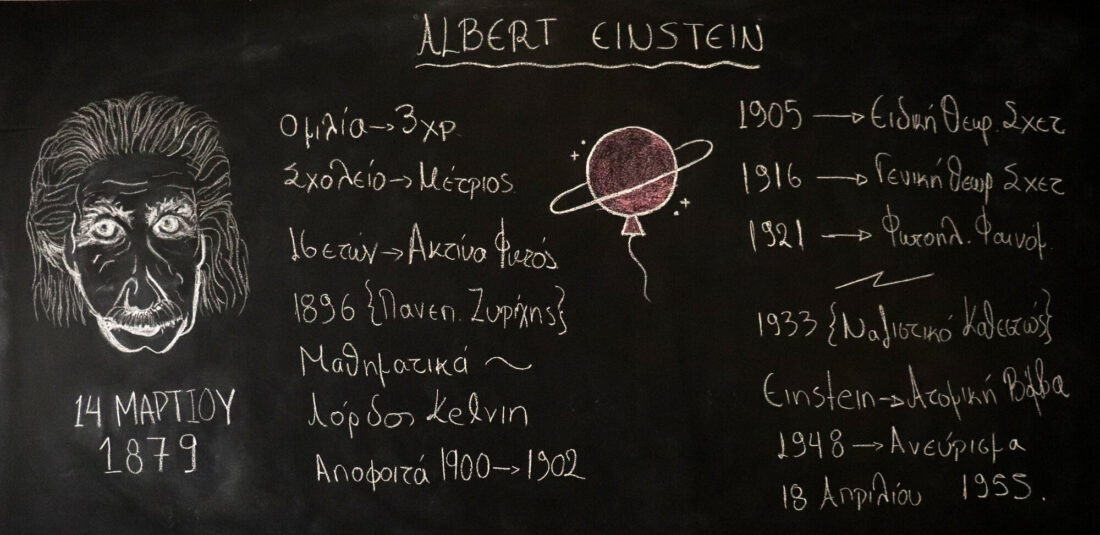 ALBERT EINSTEIN
14 ΜΑΡΤΙΟΥ
1879
Ομιλία → 3 χρ.
Σχολείο → Μέτριος
16 ετών → Ακτίνα Φωτός
1896 {Πανεπ. Ζυρίχης}
Μαθηματικά ~
Λόρδος Kelvin
Αποφοιτά 1900 → 1902
1905 → Ειδική Θεωρ. Σχετ
1916 → Γενική Θεωρ Σχετ
1921 → Φωτοηλ. Φαινόμ.
1933 {Ναζιστικό Καθεστώς}
Einstein → Ατομική Βόμβα
1948 → Ανεύρισμα
18 Απριλίου 1955.